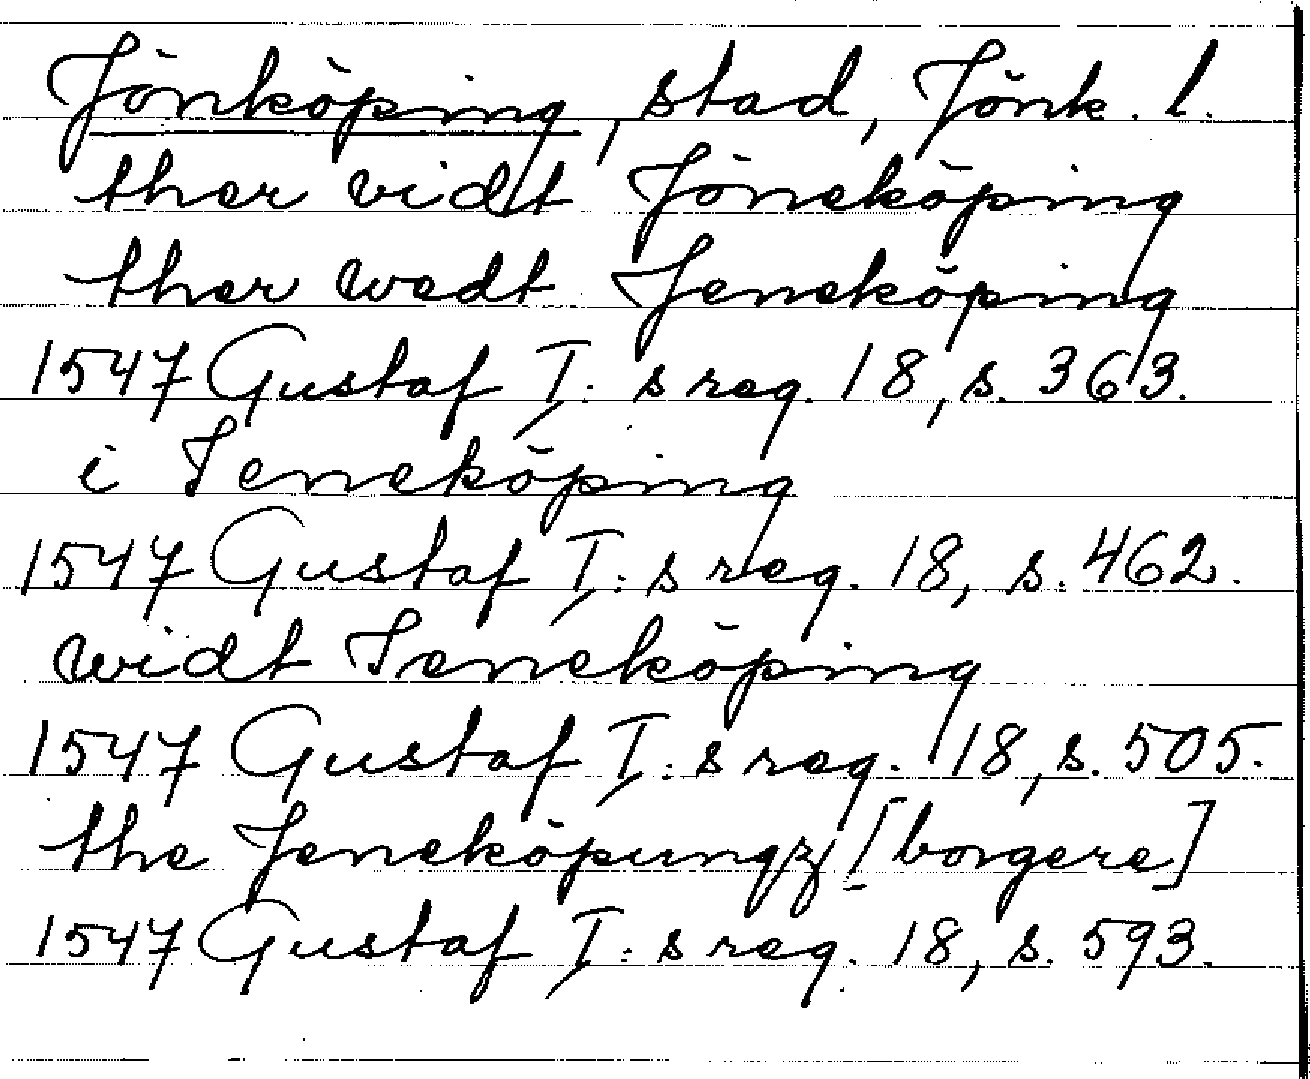 Jönköping, stad, Jönk. l.
ther vidt Jöneköping
ther wedt Jeneköping
1547 Gustaf I: s reg. 18, s. 363.
i Ieneköping
1547 Gustaf I: s reg. 18, s. 462.
widt Ieneköping
1547 Gustaf I: s reg. 18, s. 505.
the Jeneköpungz [borgere]
1547 Gustaf I: s reg. 18, s. 593.